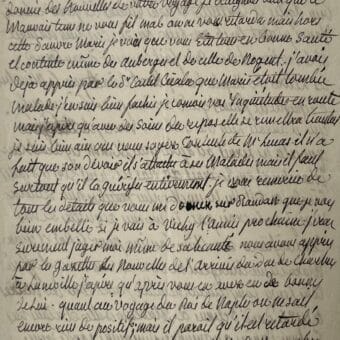 donné des nouvelles de votre voyage je craignais que le
mauvais tems ne vous fit mal ou ne vous retarda mais hors
cette pauvre Marie je vois que vous êtes tous en bonne santé
et contente même des auberges et de celle de Nogent. j'avais
deja appris par le Sr que Marie était tombée
malade j'en suis bien fachée je connois vos inquiétudes en route
mais j'espère qu'avec des soins du repos elle se remettra
je suis bien aise que vous soyez contente de Mr Lucas il n'a
fait que son devoir il s'attache à ses malades mais il faut
surtout qu'il la guérisse entièrement je vous remercie de
tous les détails que vous me donnez sur Randan que je vois
bien embelli si je vais à Vichy l'année prochaine j'irai
surement juger moi même de sa beauté nous avons appris
par les gazettes des nouvelles de l'arrivée du Duc de Chartres
à Luneville j'espère qu'après vous en avez eu de bonnes
de lui. quant au voyage du Roi de Naples on ne sait
encore rien de positif; mais il paroit qu'il est retardé